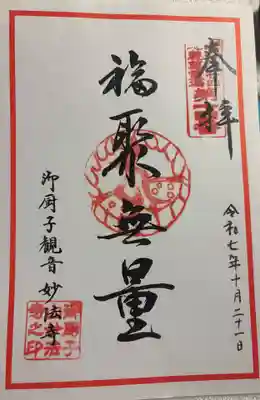 奉拝
福聚無量
令和七年十月二十一日
御厨子観音 妙法寺